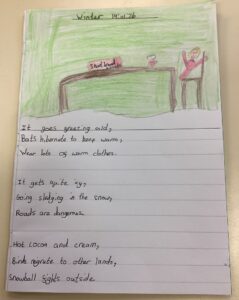 Winter
It goes freezing cold,
Bats hibernate to keep warm,
Wear lots of warm clothes.
It gets quite icy,
Going sledging in the snow,
Roads are dangerous.
Hot Cocoa and cream,
Birds migrate to other lands,
Snowball fights outside.